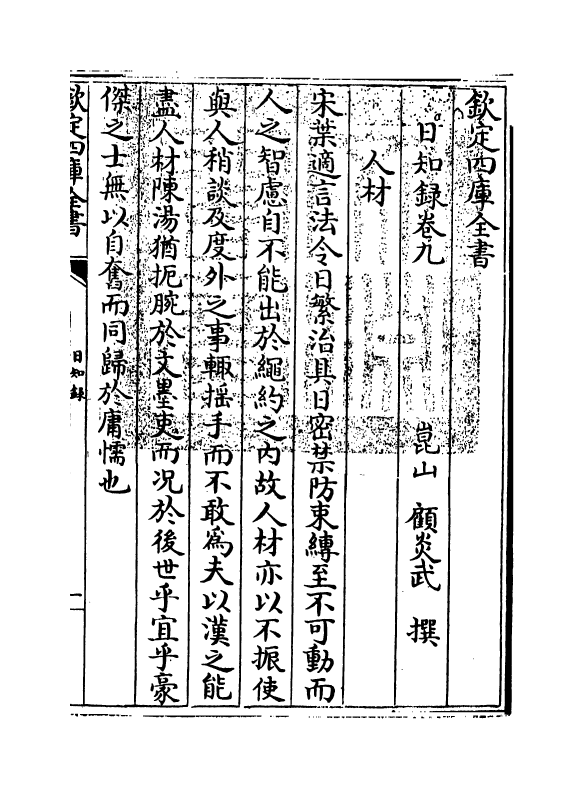 欽定四庫全書
日知録卷九
崑山 顧炎武 撰
人材
宋葉適言法令日繁治具日密禁防束縛至不可動而
人之智慮自不能出於繩約之内故人材亦以不振使
與人稍談及度外之事輙摇手而不敢為夫以漢之能
盡人材陳湯猶扼腕於文墨吏而况於後世乎宜乎豪
傑之士無以自奮而同歸於庸懦也
欽定四庫全書
日知録
一